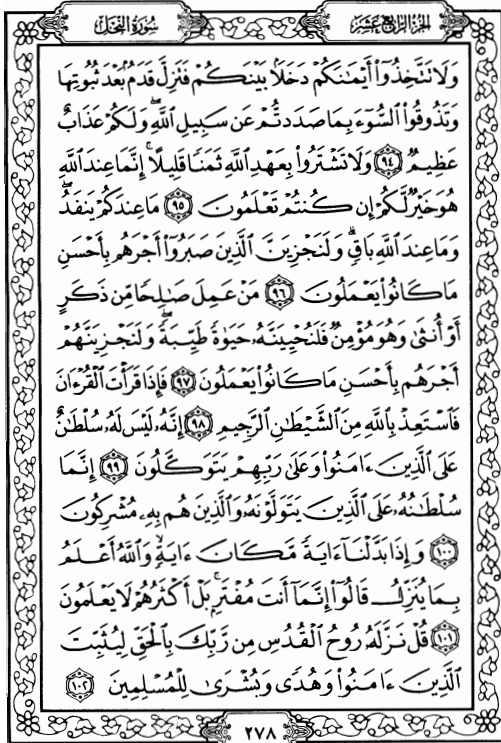 سُورَةُ النَّحْلِ
الجُزْءُ الرَّابِعَ عَشَرَ
وَلَا تَتَّخِذُوٓاْ أَيْمَٰنَكُمْ دَخَلَۢا بَيْنَكُمْ فَتَزِلَّ قَدَمُۢ بَعْدَ ثُبُوتِهَا
وَتَذُوقُواْ ٱلسُّوٓءَ بِمَا صَدَدتُّمْ عَن سَبِيلِ ٱللَّهِ وَلَكُمْ عَذَابٌ
عَظِيمٌ ٩٤ وَلَا تَشْتَرُواْ بِعَهْدِ ٱللَّهِ ثَمَنًا قَلِيلًا ۚ إِنَّمَا عِندَ ٱللَّهِ
هُوَ خَيْرٌ لَّكُمْ إِن كُنتُمْ تَعْلَمُونَ ٩٥ مَا عِندَكُمْ يَنفَدُ ۖ
وَمَا عِندَ ٱللَّهِ بَاقٍ ۗ وَلَنَجْزِيَنَّ ٱلَّذِينَ صَبَرُوٓاْ أَجْرَهُم بِأَحْسَنِ
مَا كَانُواْ يَعْمَلُونَ ٩٦ مَنْ عَمِلَ صَٰلِحًا مِّن ذَكَرٍ
أَوْ أُنثَىٰ وَهُوَ مُؤْمِنٌ فَلَنُحْيِيَنَّهُۥ حَيَوٰةً طَيِّبَةً ۖ وَلَنَجْزِيَنَّهُمْ
أَجْرَهُم بِأَحْسَنِ مَا كَانُواْ يَعْمَلُونَ ٩٧ فَإِذَا قَرَأْتَ ٱلْقُرْءَانَ
فَٱسْتَعِذْ بِٱللَّهِ مِنَ ٱلشَّيْطَٰنِ ٱلرَّجِيمِ ٩٨ إِنَّهُۥ لَيْسَ لَهُۥ سُلْطَٰنٌ
عَلَى ٱلَّذِينَ ءَامَنُواْ وَعَلَىٰ رَبِّهِمْ يَتَوَكَّلُونَ ٩٩ إِنَّمَا
سُلْطَٰنُهُۥ عَلَى ٱلَّذِينَ يَتَوَلَّوْنَهُۥ وَٱلَّذِينَ هُم بِهِۦ مُشْرِكُونَ
١٠٠ وَإِذَا بَدَّلْنَآ ءَايَةً مَّكَانَ ءَايَةٍ ۙ وَٱللَّهُ أَعْلَمُ
بِمَا يُنَزِّلُ قَالُوٓاْ إِنَّمَآ أَنتَ مُفْتَرٍۭ ۚ بَلْ أَكْثَرُهُمْ لَا يَعْلَمُونَ
١٠١ قُلْ نَزَّلَهُۥ رُوحُ ٱلْقُدُسِ مِن رَّبِّكَ بِٱلْحَقِّ لِيُثَبِّتَ
ٱلَّذِينَ ءَامَنُواْ وَهُدًى وَبُشْرَىٰ لِلْمُسْلِمِينَ ١٠٢
٢٧٨